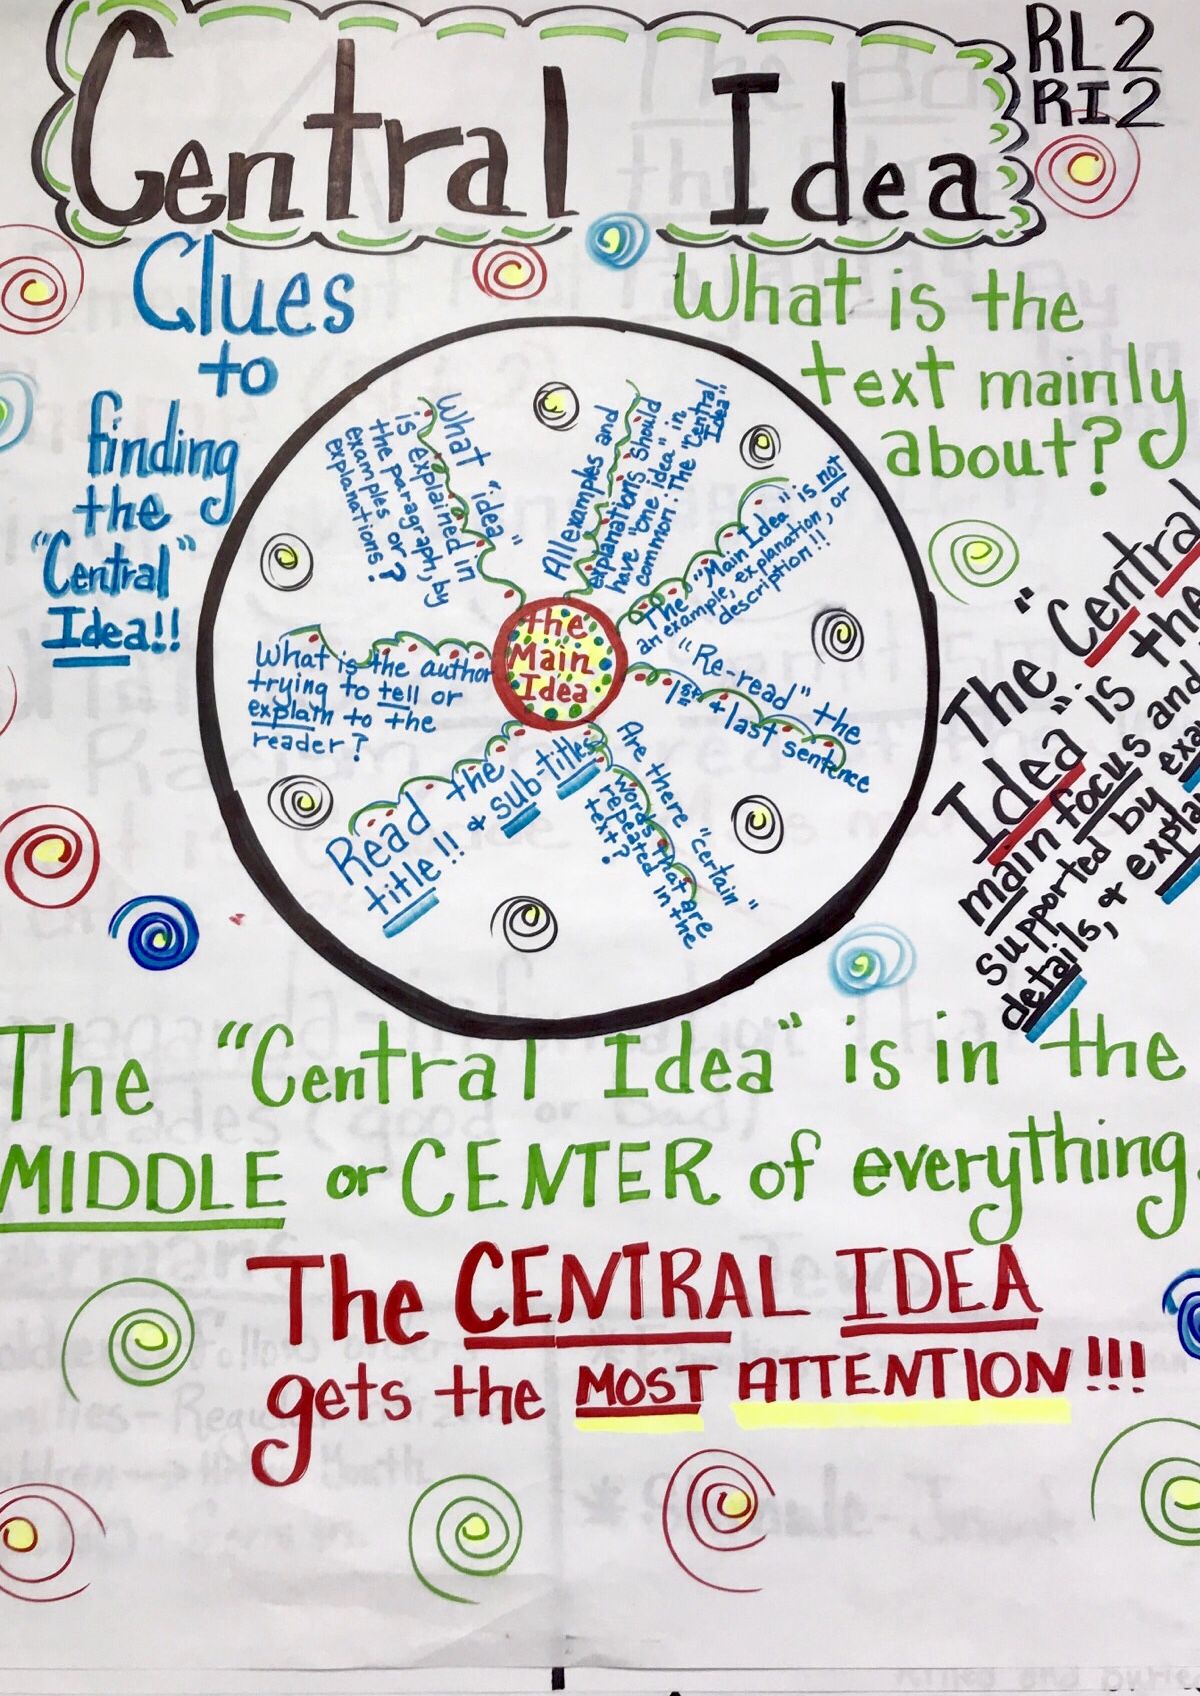 Central Idea
RL2
RI2
Clues
to
finding
the
"Central"
Idea!!
What is the
text mainly
about?
the
Main
Idea
What "idea"
is explained in
the paragraph, by
examples or
explanations?
All examples and
explanations should
have "one idea" in
common: The "Central
Idea"
The "Main Idea" is not
an example, explanation, or
description!!
"Re-read" the
1st + last sentence
Are there "certain"
words that are
repeated in the
text?
Read the
title!! + sub-titles
What is the author
trying to tell or
explain to the
reader?
The "Central
Idea" is the
main focus and
supported by
details, + explan
The "Central Idea" is in the
MIDDLE or CENTER of everything.
The CENTRAL IDEA
gets the MOST ATTENTION!!!